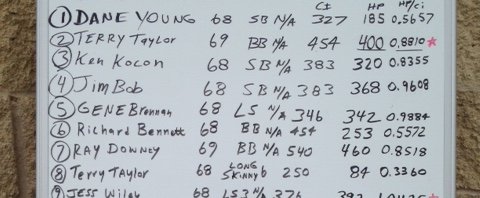 CI HP HP/ci
① DANE YOUNG 68 SB N/A 327 185 0.5657
② TERRY Taylor 69 BB N/A 454 400 0.8810
③ Ken Kocon 68 SB N/A 383 320 0.8355
④ Jim Bob 68 SB N/A 383 368 0.9608
⑤ GENE Brennan 68 LS N/A 346 342 0.9884
⑥ Richard Bennett 68 BB N/A 454 253 0.5572
⑦ RAY Downey 69 BB N/A 540 460 0.8518
⑧ Terry Taylor 68 LONG SKINNY 6 250 84 0.3360
⑨ JESS Wiley 68 LS3 N/A 376